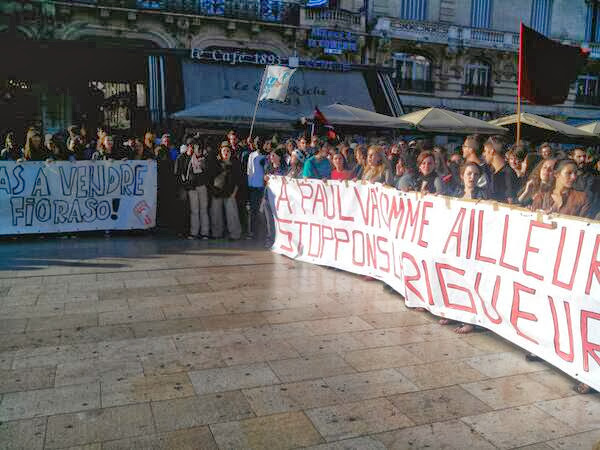 le Café 1893
Le Café Riche
AS A VENDRE
FIORASO!
A PAUL VA COMME AILLEUR
STOPPONS L RIGUEUR